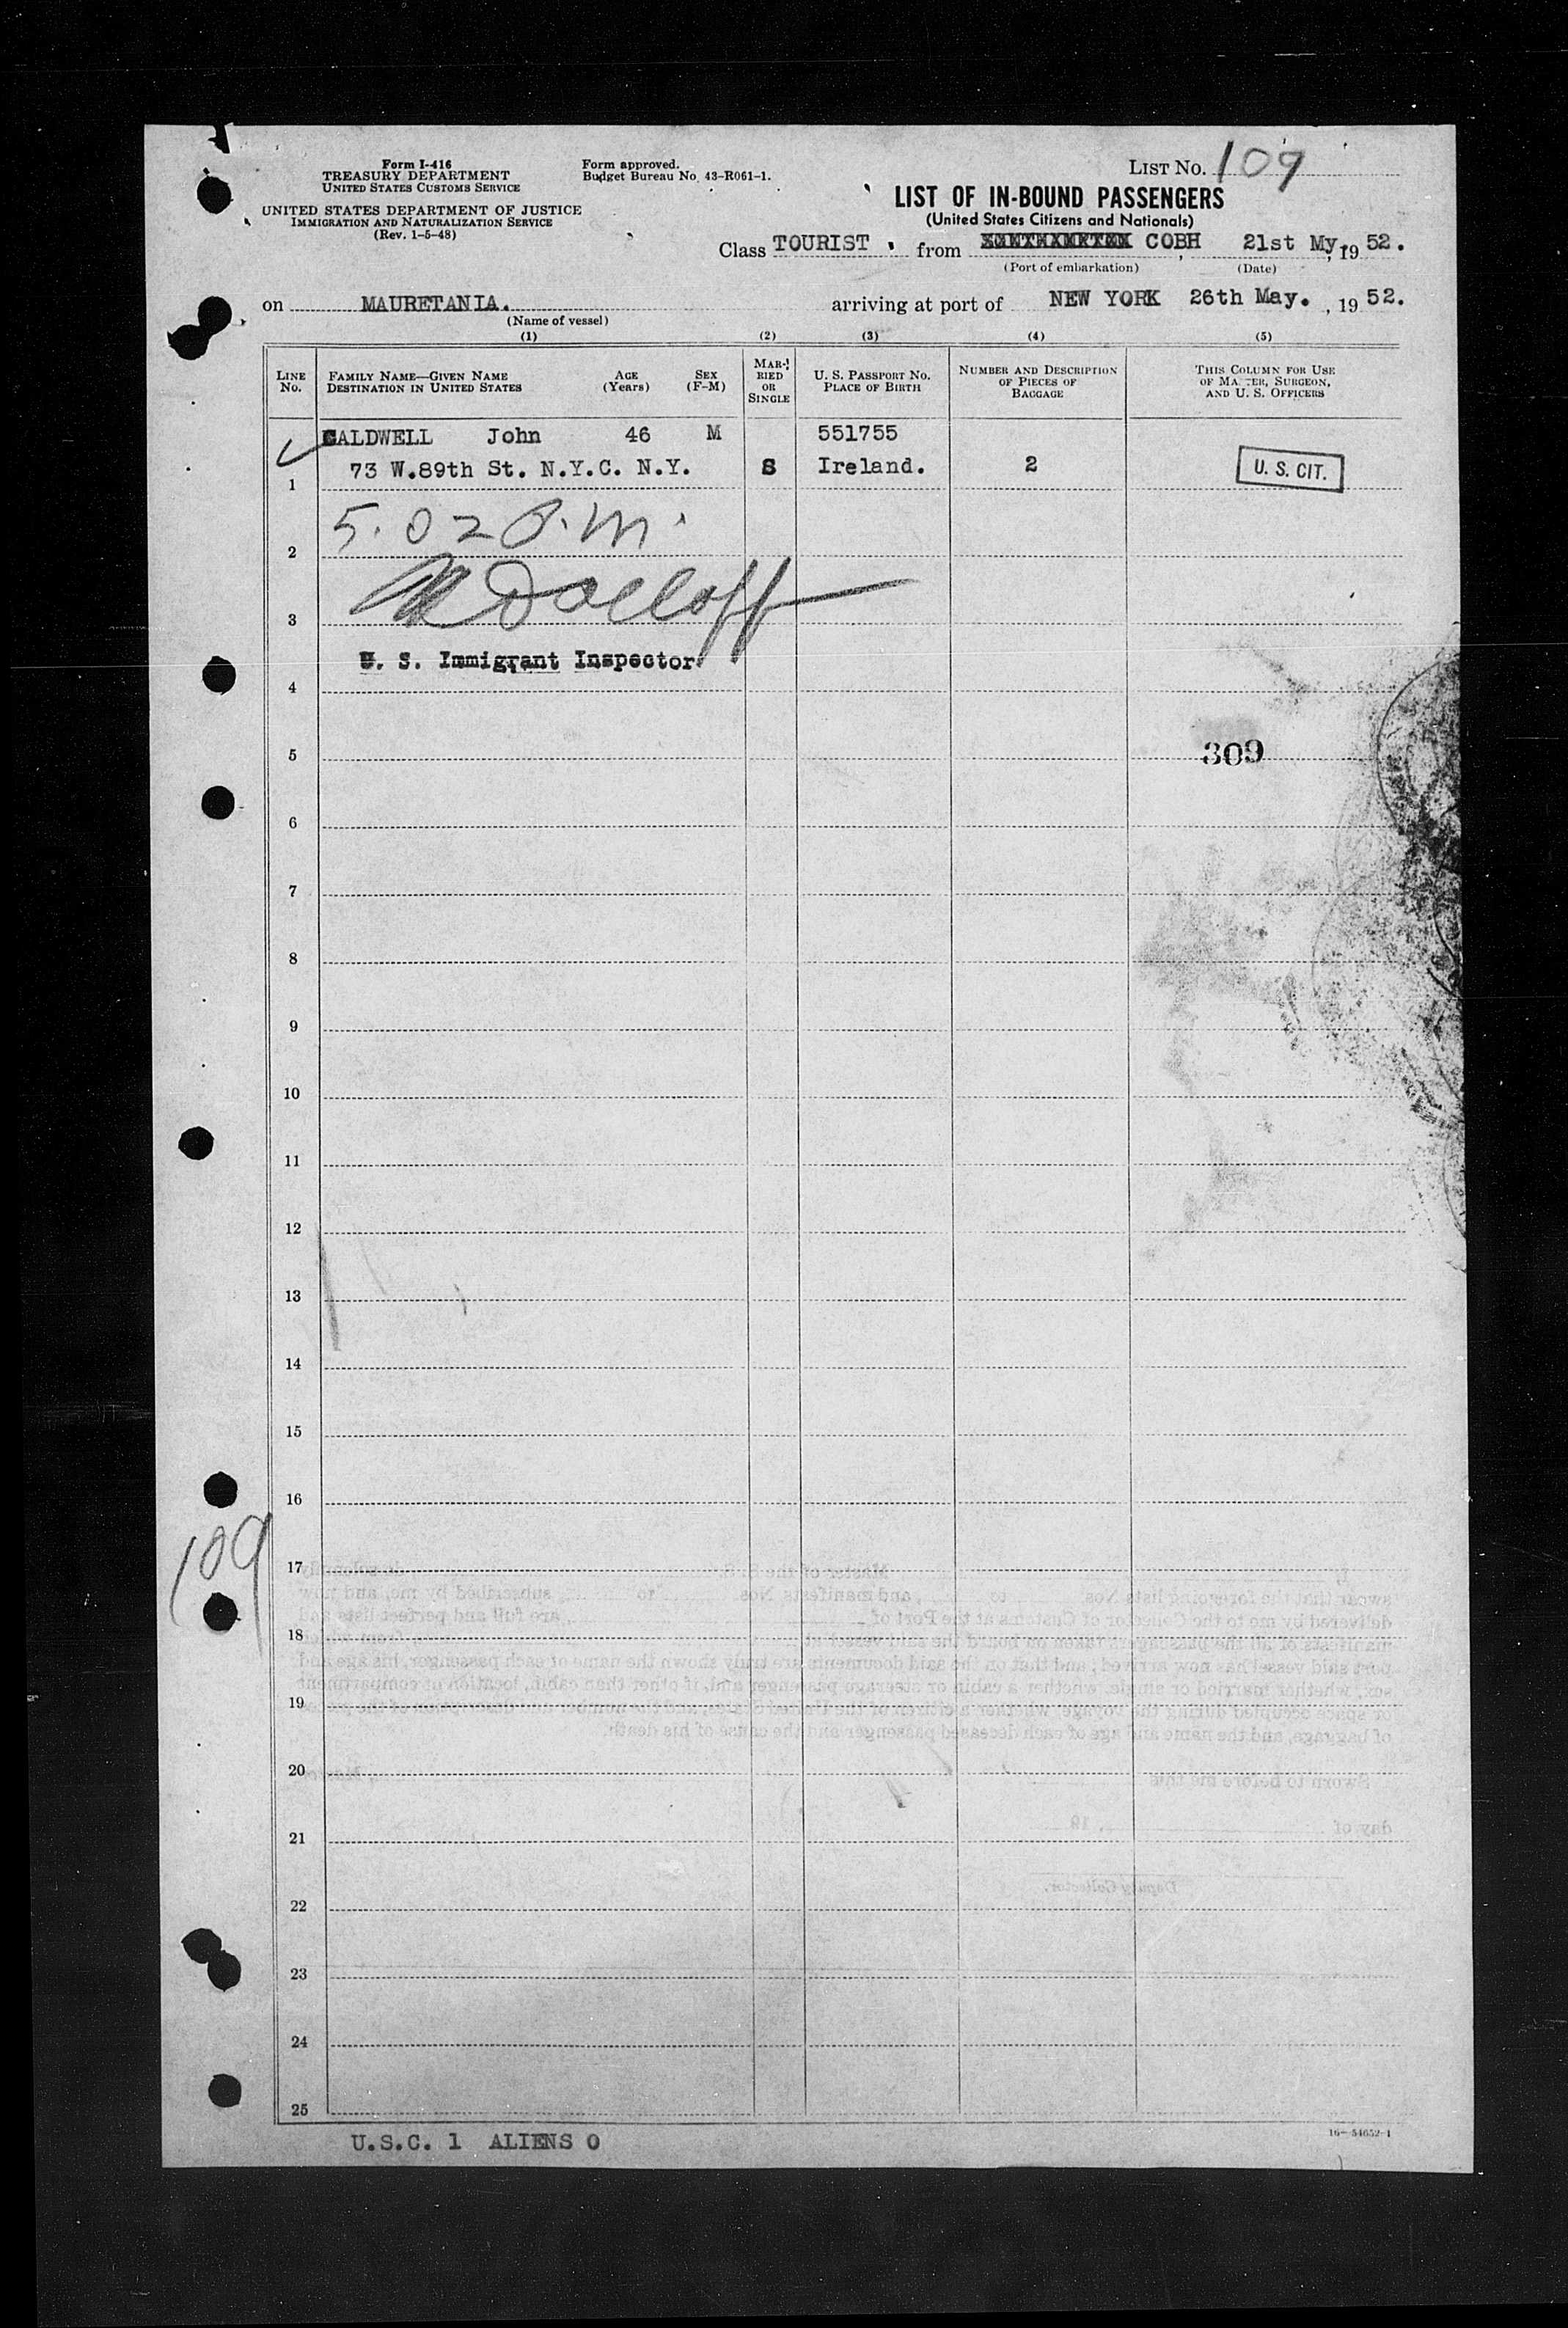 Form I-416
TREASURY DEPARTMENT
UNITED STATES CUSTOMS SERVICE
UNITED STATES DEPARTMENT OF JUSTICE
IMMIGRATION AND NATURALIZATION SERVICE
(Rev. 1-5-48)
Form approved.
Budget Bureau No. 43-R061-1.
LIST NO. 109
LIST OF IN-BOUND PASSENGERS
(United States Citizens and Nationals)
Class TOURIST. from COBH 21st My, 1952.
(Port of embarkation) (Date)
on MAURETANIA. arriving at port of NEW YORK 26th May. , 1952.
(Name of vessel)
(1) (2) (3) (4) (5)
LINE NO. FAMILY NAME—GIVEN NAME DESTINATION IN UNITED STATES AGE (Years) SEX (F-M) MARRIED OR SINGLE U. S. PASSPORT NO. PLACE OF BIRTH NUMBER AND DESCRIPTION OF PIECES OF BAGGAGE THIS COLUMN FOR USE OF MASTER, SURGEON, AND U. S. OFFICERS
CALDWELL John 46 M 551755
1 73 W.89th St. N.Y.C. N.Y. S Ireland. 2 U. S. CIT.
2 5.02 P.M.
3
U. S. Immigrant Inspector
4
5 309
6
7
8
9
10
11
12
13
14
15
16
109
17
18
19
20
21
22
23
24
25
U.S.C. 1 ALIENS 0
16—54652-1